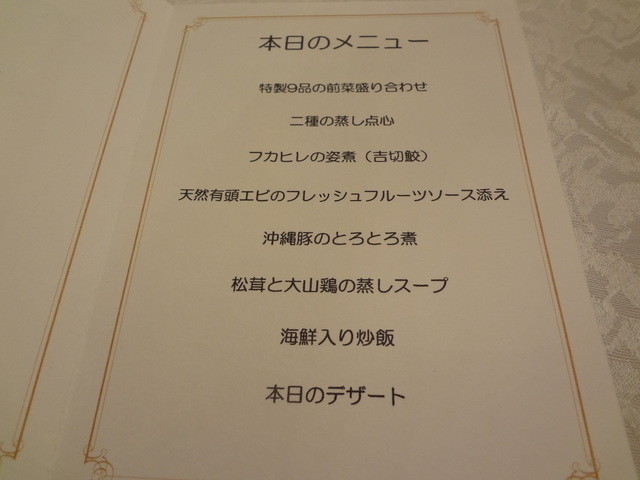 本日のメニュー
特製9品の前菜盛り合わせ
二種の蒸し点心
フカヒレの姿煮（吉切鮫）
天然有頭エビのフレッシュフルーツソース添え
沖縄豚のとろとろ煮
松茸と大山鶏の蒸しスープ
海鮮入り炒飯
本日のデザート